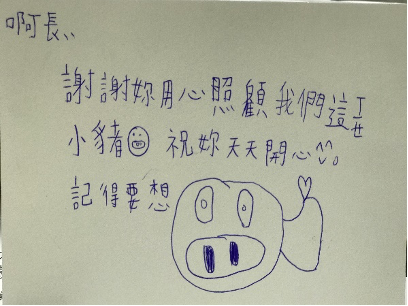 啊長、、
謝謝妳用心照顧我們這ㄒㄧㄝ
小豬 祝妳天天開心^^。
記得要想